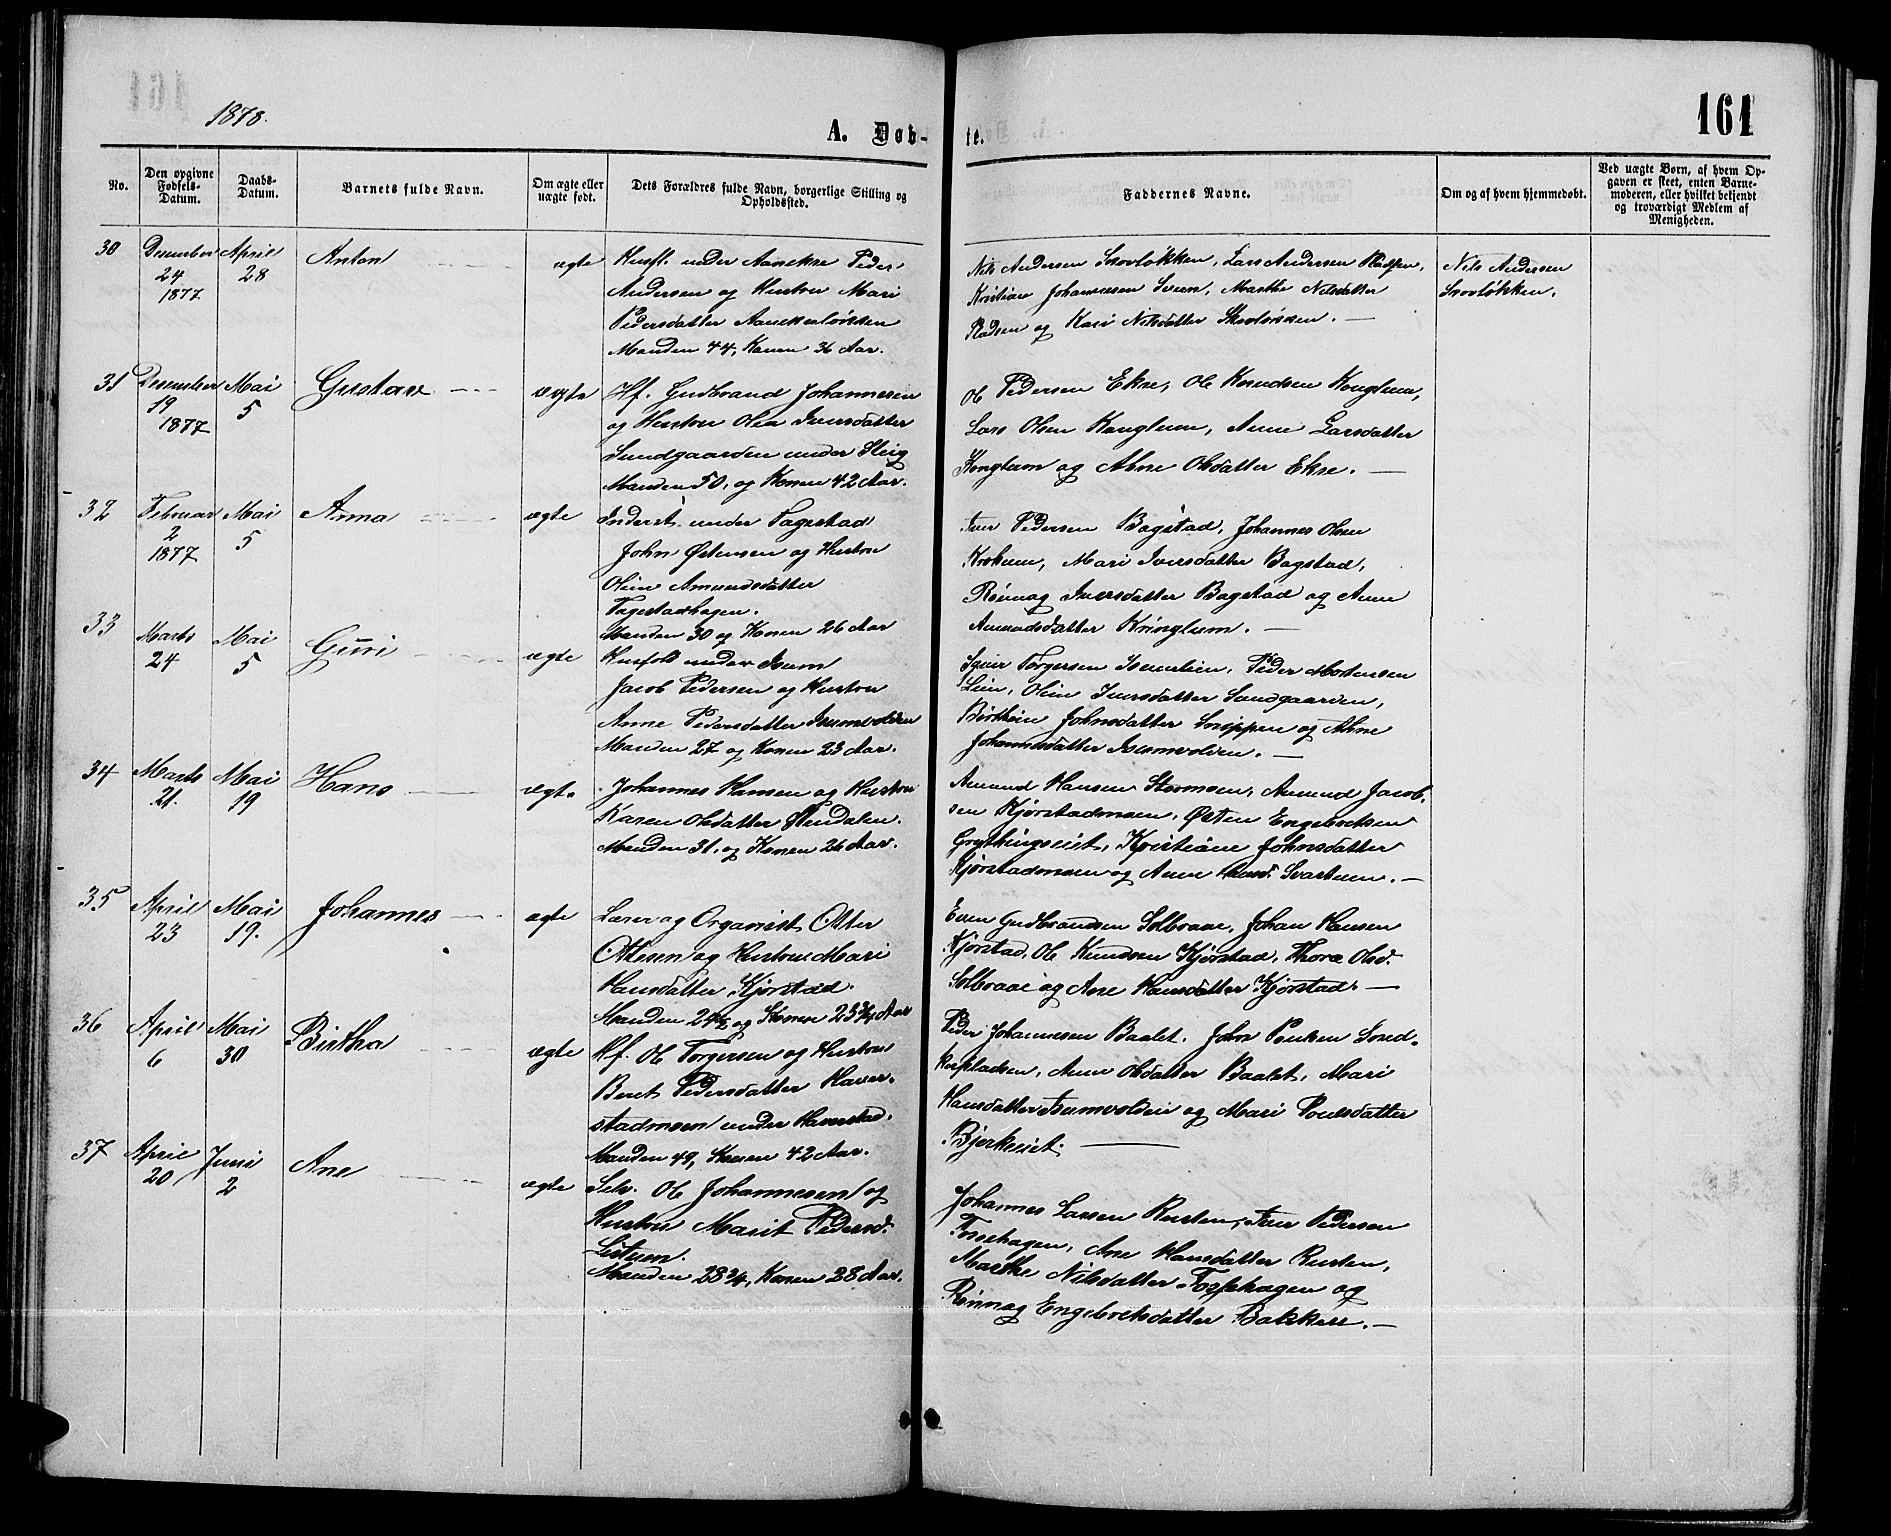 161
1878.
A. Døb-
te.
No.
Den opgivne Fødsels-Datum.
Daabs-Datum.
Barnets fulde Navn.
Om ægte eller uægte født.
Dets Forældres fulde Navn, borgerlige Stilling og Opholdssted.
Faddernes Navne.
Om og af hvem hjemmedøbt.
Ved uægte Børn, af hvem Opgaven er skeet, enten Barnemoderen, eller hvilket bekjendt og troværdigt Medlem af Menigheden.
30
Desember 24 1877
April 28
Anton
ægte
Husf. under Peder
Andersen og Hustru Mari
Pedersdatter
Manden 44, Konen 36 Aar.
Nils Andersen Skovløkken, Lars Andersen Pladsen,
Kristian Johannesen Sveen, Marthe Nilsdatter
Pladsen og Kari Nilsdatter Skovløkken. —
Nils Andersen
Skovløkken.
31
Desember 19 1877
Mai 5
Gustav
ægte
Hf. Gudbrand Johannesen
og Hustru Olea Iversdatter
Sundgaarden under Steig
Manden 50, og Konen 42 Aar.
Ol Pedersen Ekre, Ole Knudsen Konglum,
Lars Olsen Konglum, Anne Larsdatter
Konglum og Ahne Olsdatter Ekre. —
32
Februar 2 1877
Mai 5
Anna
ægte
Inderst. under Fagestad
John Østensen og Hustru
Oline Amundsdatter
Fagestadhagen.
Manden 30 og Konen 26 Aar
Iver Pedersen Bagstad, Johannes Olsen
Mari Iversdatter Bagstad,
Rønnog Iversdatter Bagstad og Anne
Amundsdatter Kringlum. —
33
Marts 24
Mai 5
Guri
ægte
Husfolk under Isum
Jacob Pedersen og Hustru
Anne Pedersdatter Isumvolden
Manden 27 og Konen 23 Aar.
Iver Torgersen Isumlien, Peder Mortensen
Lien, Oline Iversdatter Sundgaarden,
Berthine Johnsdatter Snippen og Ahne
Johannesdatter Isumvolden. —
34
Marts 21.
Mai 19
Hans
ægte
Johannes Hansen og Hustru
Karen Olsdatter
Manden 31, og Konen 26 Aar.
Amund Hansen Stormoen, Amund Jacob-
sen Kjørstadmoen, Østen Engebretsen
Grythingseiet, Kristiane Johnsdatter
Kjørstadmoen og Anne Hansd. Svartuen. —
35
April 23
Mai 19.
Johannes
ægte
Lærer og Organist Otter
Ottesen og Hustru Mari
Hansdatter Kjørstad.
Manden 24½ og Konen 23¾ Aar
Even Gudbrandsen Solbraae, Johan Hansen
Kjørstad, Ole Knudsen Kjørstad, Thora Olsd.
Solbraae og Ane Hansdatter Kjørstad. —
36
April 6
Mai 30
Birtha
ægte
Hf. Ole Torgersen og Hustru
Beret Pedersdatter Haver-
stadmoen under Haverstad.
Manden 49, Konen 42 Aar.
Peder Johannesen Baalet, John Poulsen Smed-
kerpladsen, Anne Olsdatter Baalet, Mari
Hansdatter Isumvolden og Mari Poulsdatter
Bjørkeeiet. —
37
April 20
Juni 2
Ane
ægte
Selv. Ole Johannesen og
Hustru Marit Pedersd.
Listuen.
Manden 28¾, Konen 28 Aar.
Johannes Larsen Rusten, Iver Pedersen
Forrhagen, Ane Hansdatter Rusten,
Marthe Nilsdatter Forrhagen og
Rønnog Engebretsdatter Bakken. —